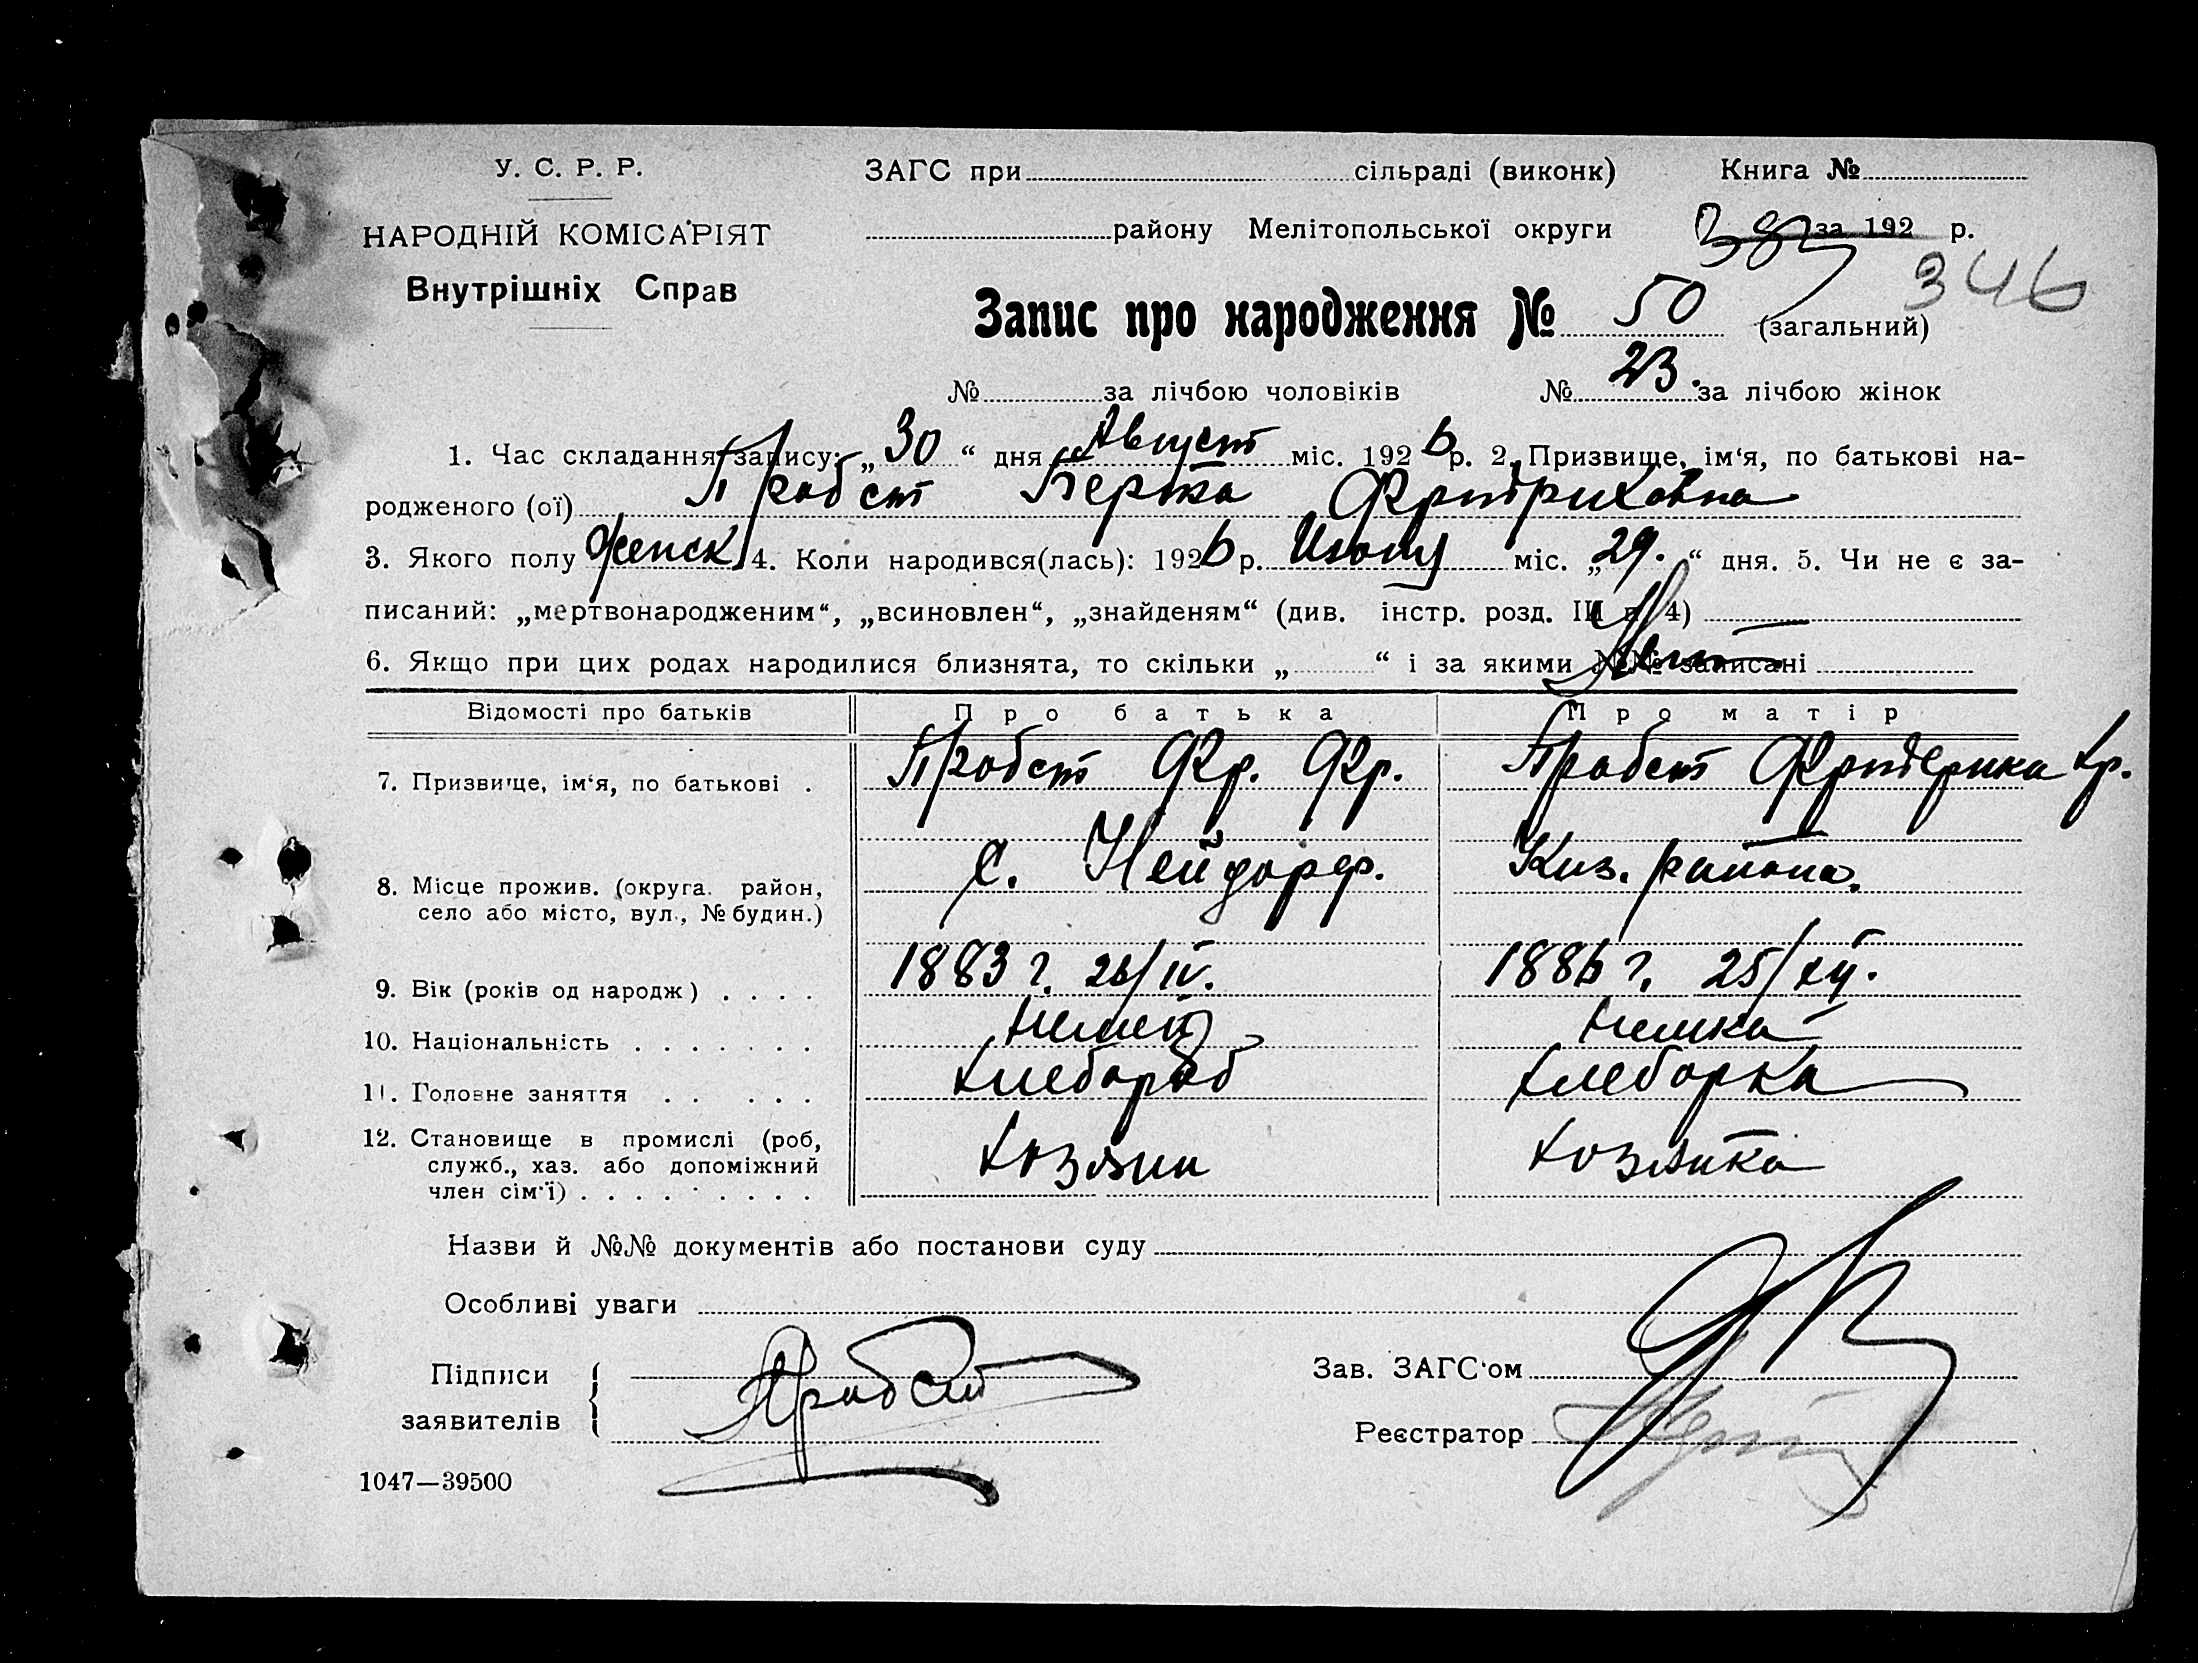 У. С. Р. Р.
ЗАГС при сільраді (виконк) Книга №
НАРОДНІЙ КОМІСАРІЯТ
району Мелітопольської округи за 192 р.
Внутрішніх Справ
346
Запис про народження № 50 (загальний)
№ за лічбою чоловіків № 23. за лічбою жінок
1. Час складання запису: „30“ дня Август міс. 1926 р. 2. Призвище, ім‘я, по батькові на-
родженого (ої) Пробст Берта Фридриховна
3. Якого полу женск. 4. Коли народився(лась): 1926 р. міс. „29.“ дня. 5. Чи не є за-
писаний: „мертвонародженим“, „всиновлен“, „знайденям“ (див. інстр. розд. III п. 4)
6. Якщо при цих родах народилися близнята, то скільки „ “ і за якими №№ записані
Нет
Відомості про батьків Про батька Про матір
7. Призвище, ім‘я, по батькові . Пробст Фр. Фр. Пробст Фридерика Хр.
8. Місце прожив. (округа. район, с. Нейдорф. района.
село або місто, вул., № будин.)
9. Вік (років од народж) . . . . 1883 г. 26/IV. 1886 г. 25/XII.
10. Національність . . . . . . . Немец Немка
11. Головне заняття . . . . . Хлебороб Хлеборка
12. Становище в промислі (роб, Хозяин Хозяйка
служб., хаз. або допоміжний
член сім‘ї) . . . . . . . . .
Назви й №№ документів або постанови суду
Особливі уваги
Підписи Пробст Зав. ЗАГС‘ом
заявителів Реєстратор
1047—39500